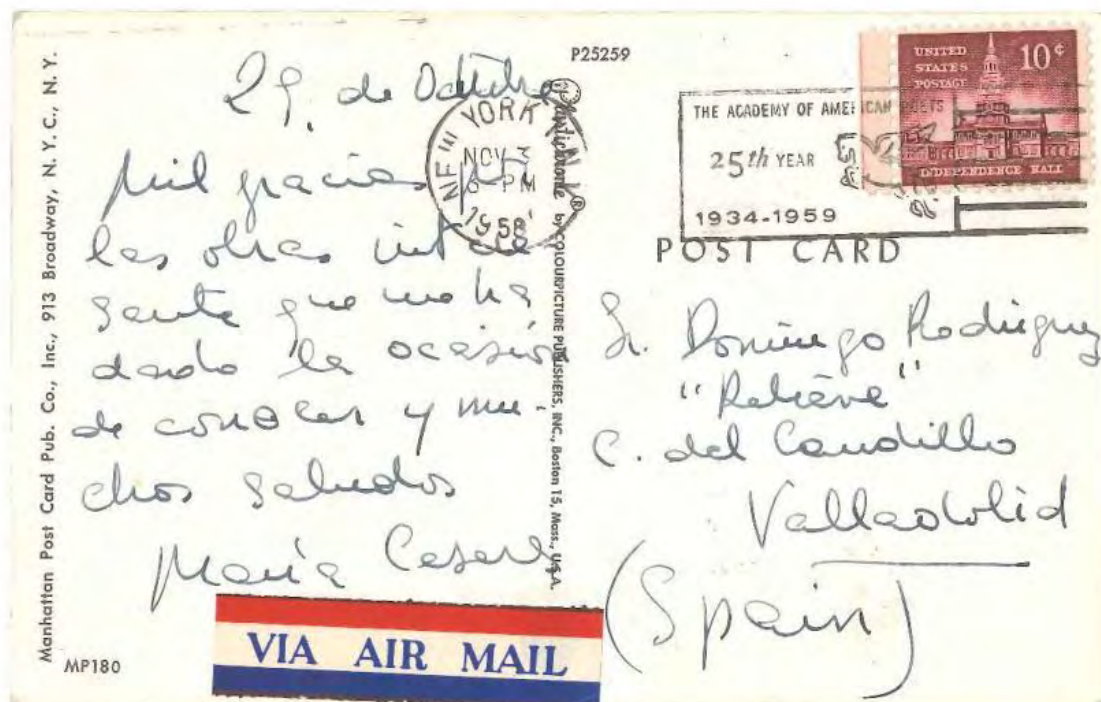 Manhattan Post Card Pub. Co., Inc., 913 Broadway, N. Y. C., N. Y.
MP180
29. de Octubre
Mil gracias por
las obras intere
sante que me ha
dado la ocasión
de conocer y mu-
chos saludos
María Casares
VIA AIR MAIL
P25259
Plastichrome ® by COLOURPICTURE PUBLISHERS, INC., Boston 15, Mass., U.S.A.
NEW YORK, N.Y.
NOV 3
6-PM
1958
THE ACADEMY OF AMERICAN POETS
25th YEAR
1934-1959
UNITED
STATES
POSTAGE
10¢
INDEPENDENCE HALL
POST CARD
Sr. Domingo Rodriguez
"Relieve"
C. del Caudillo
Valladolid
(Spain)